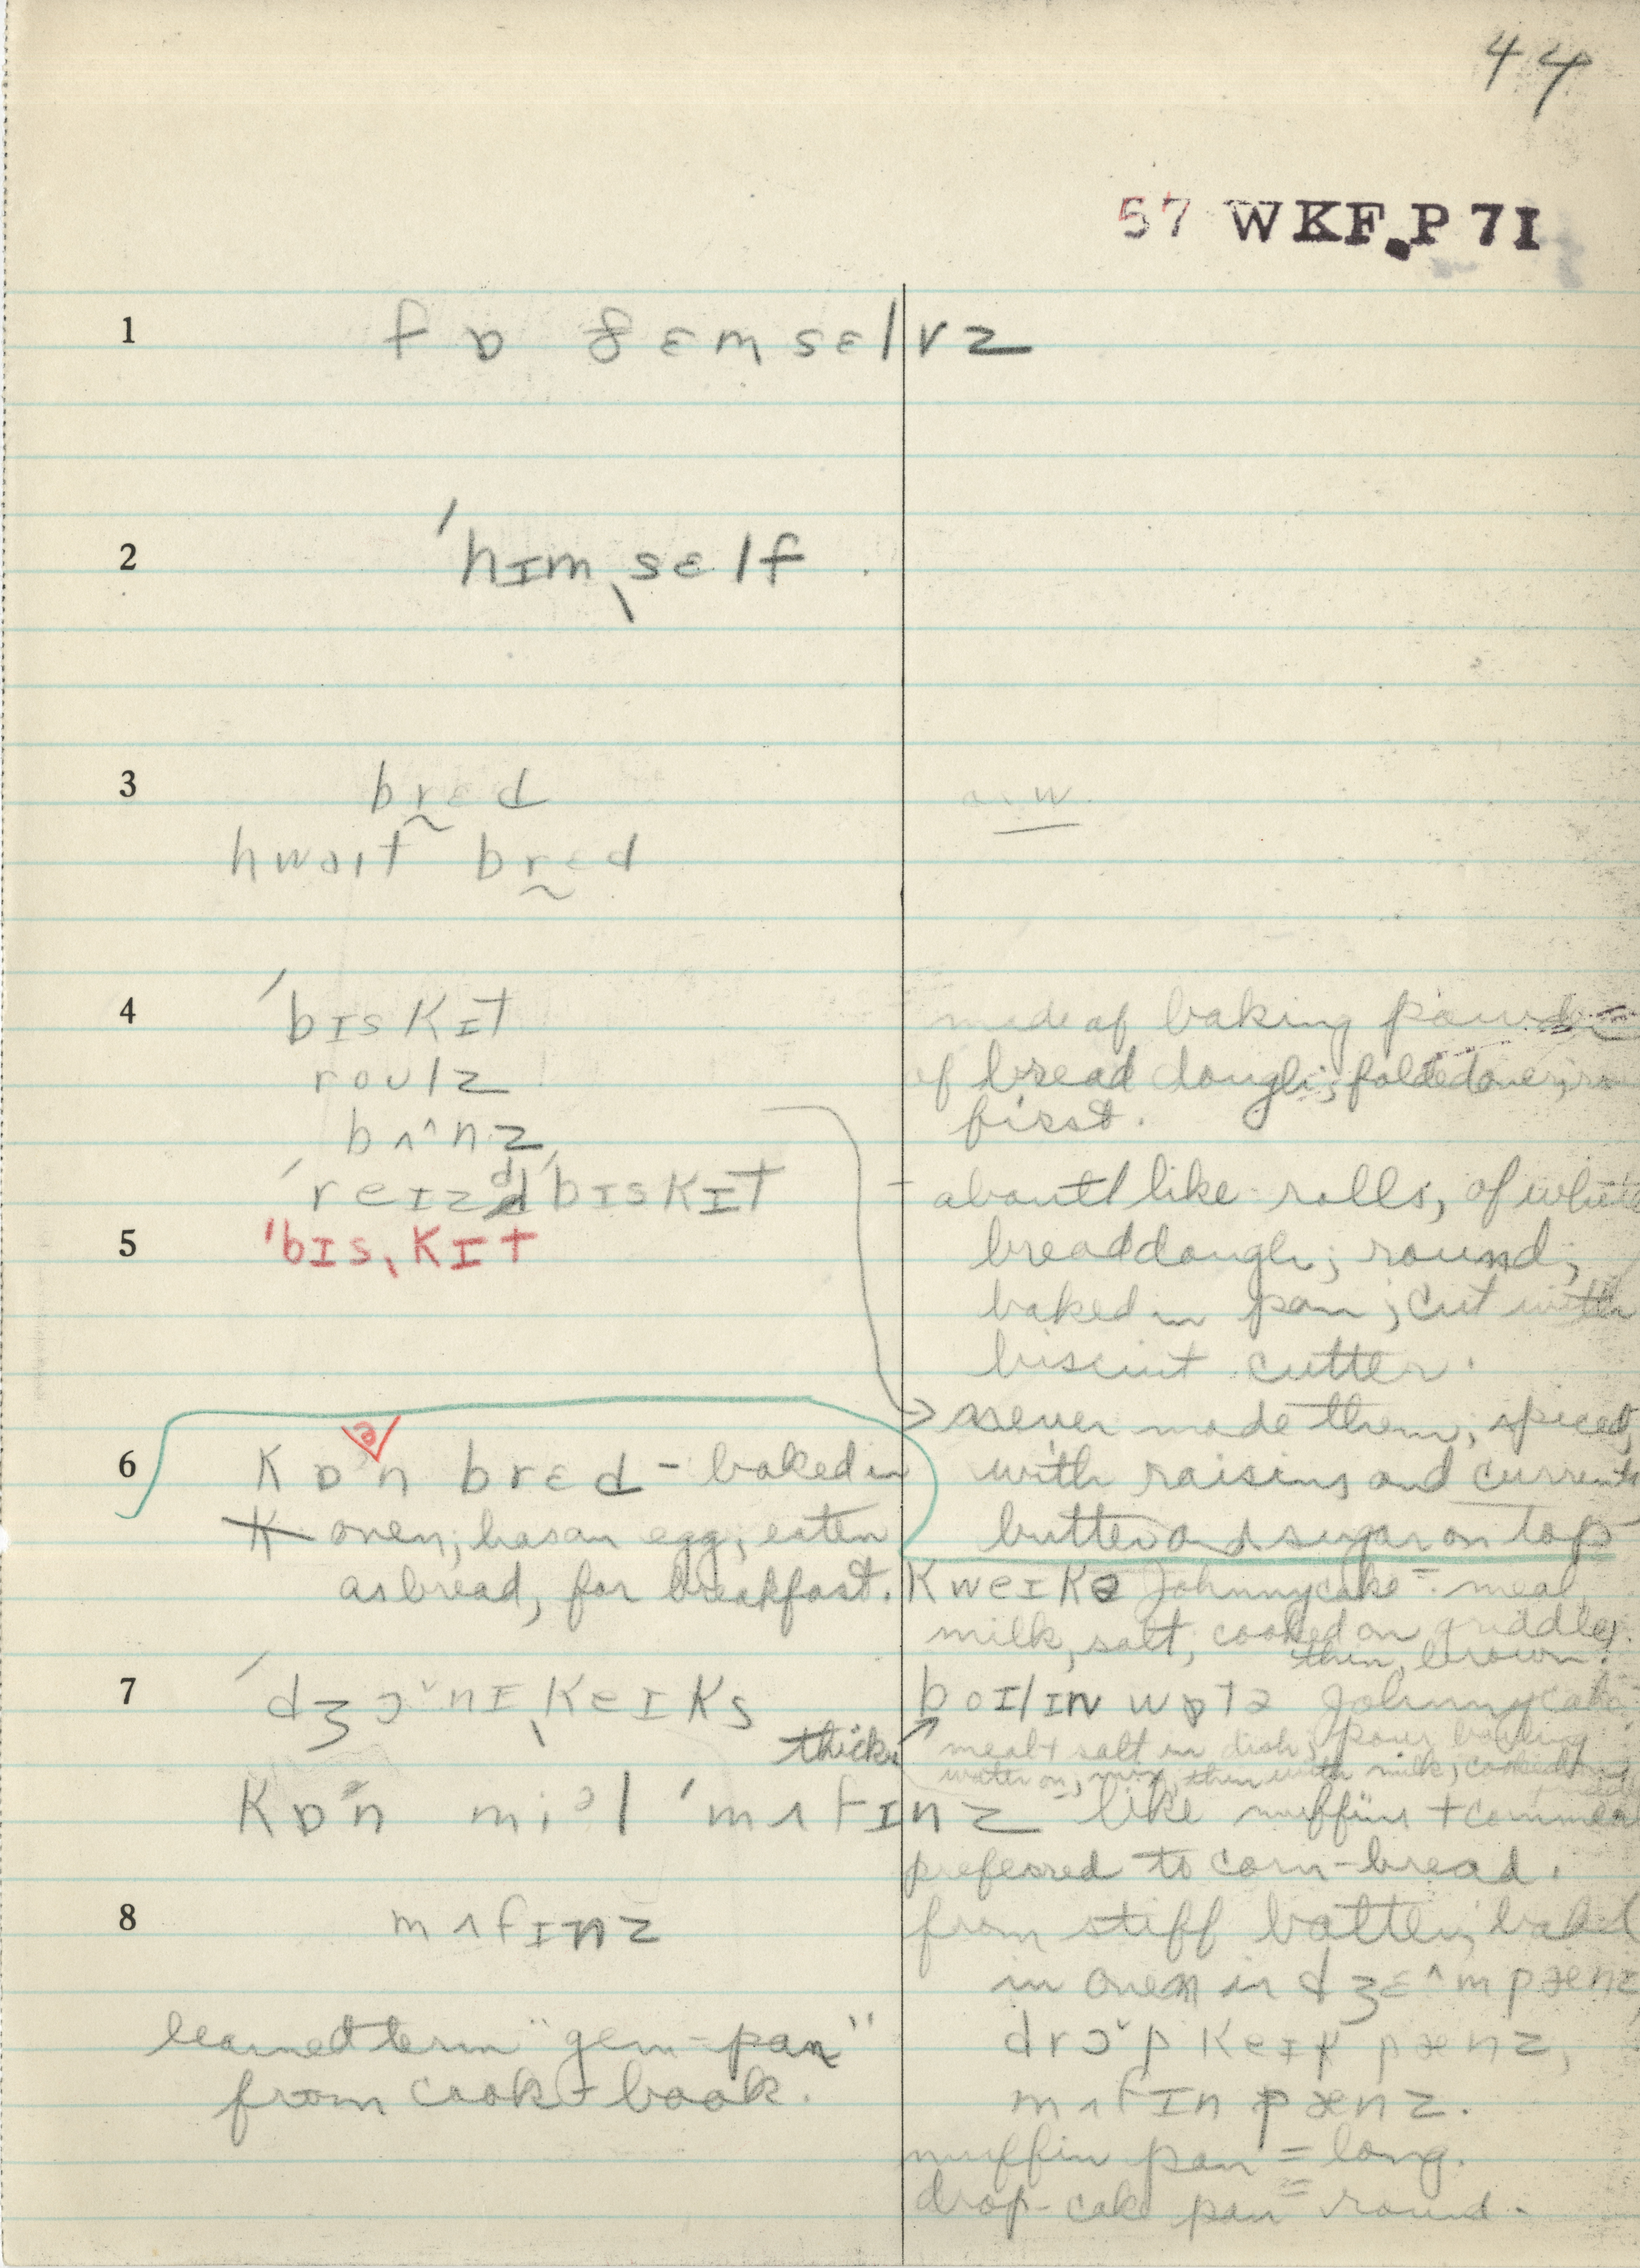 44
57 WKF.P 7I
1 fɒ ðɛmsɛlvz
2 ˈhɪmˌsɛlf
3 brɛd
hwaɪt brɛd
4 ˈbɪskɪt made of baking
roʊlz of bread dough; folded over;
first.
bʌ^nz
ˈreɪzdˈbɪskɪt - about like rolls, of white
5 ˈbɪsˌkɪt breaddough; round,
baked in pan; cut with
biscuit cutter.
→ never made them; spiced,
6 kɒən brɛd - baked in with raisins and currants
oven; has an egg; eaten butter and sugar on top
as bread, for breakfast. kweɪkə Johnnycake - meal,
milk, salt, cooked on griddle.
thin, brown.
7 ˈdʒɔ˅nɪˌkeɪks bɔɪlɪn wɒtə Johnnycake
thick meal + salt in dish; pour boiling
water on, mix, then with milk; cooked
kɒən miəl ˈmʌfɪnz like muffins + cornmeal
preferred to corn-bread.
8 mʌfɪnz from stiff batter, baked
in oven in dʒɛ^m pænz,
learned term "gem-pan" drɔ˅p keɪk pænz,
from cook-book. mʌfɪn pænz.
muffin pan = long.
drop-cake pan = round.